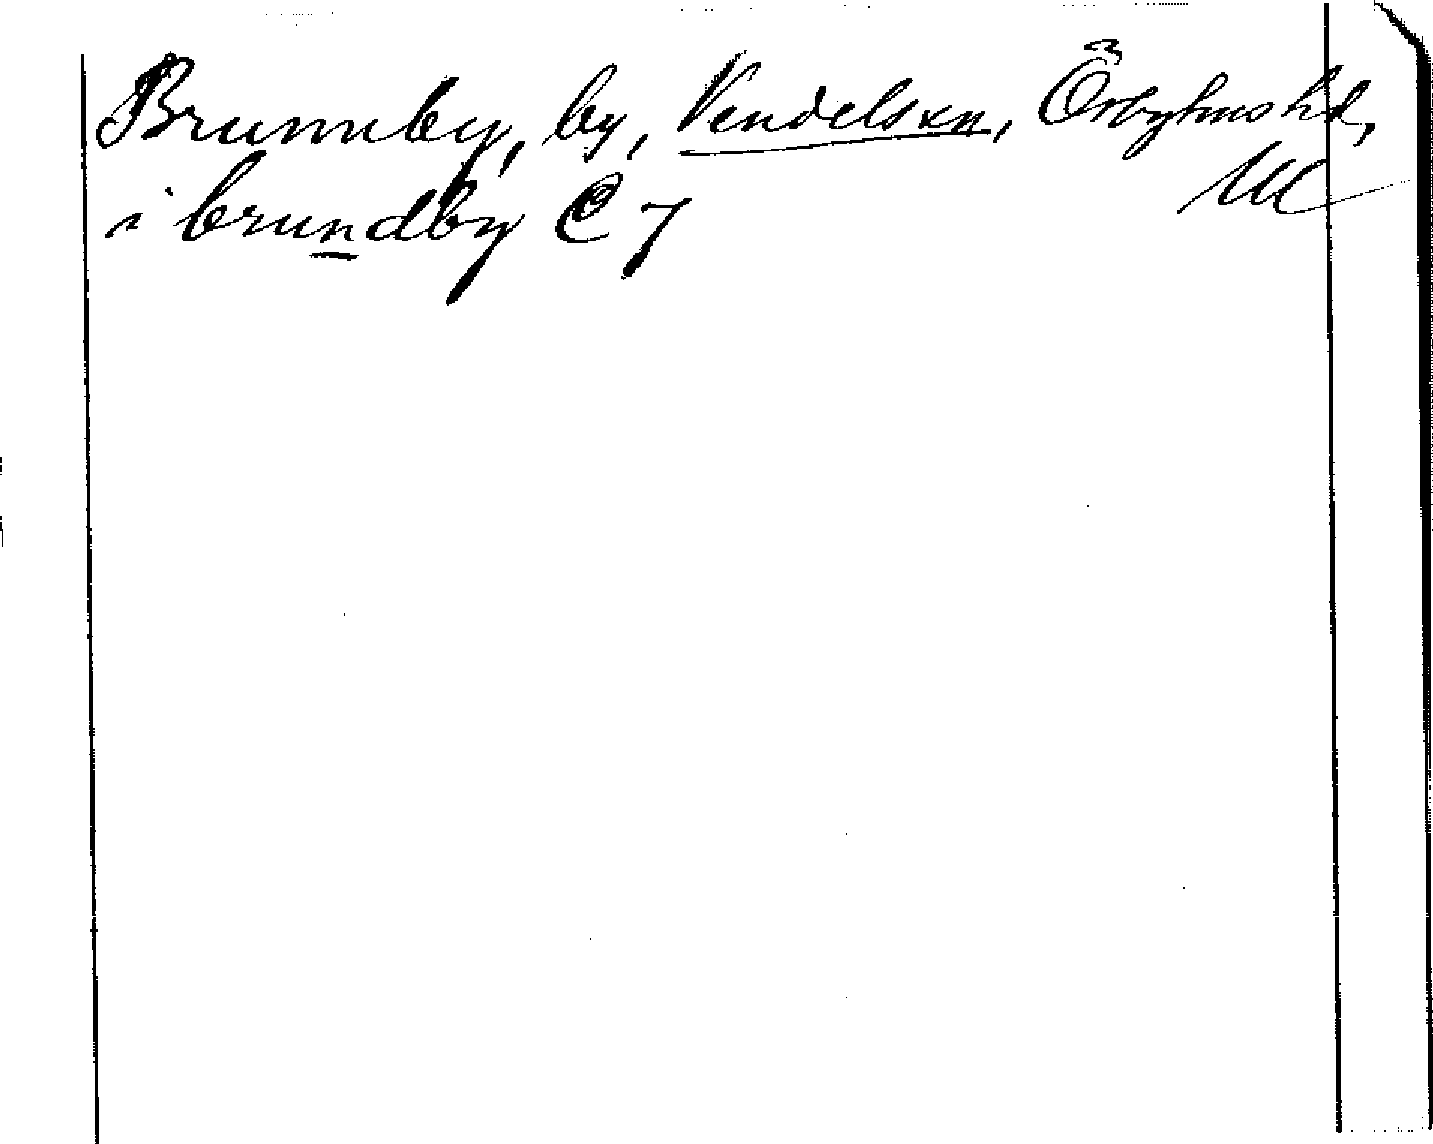 Brunnby, by, Vendels sn, Örbyhus hd,
Ul
i brundby C 7